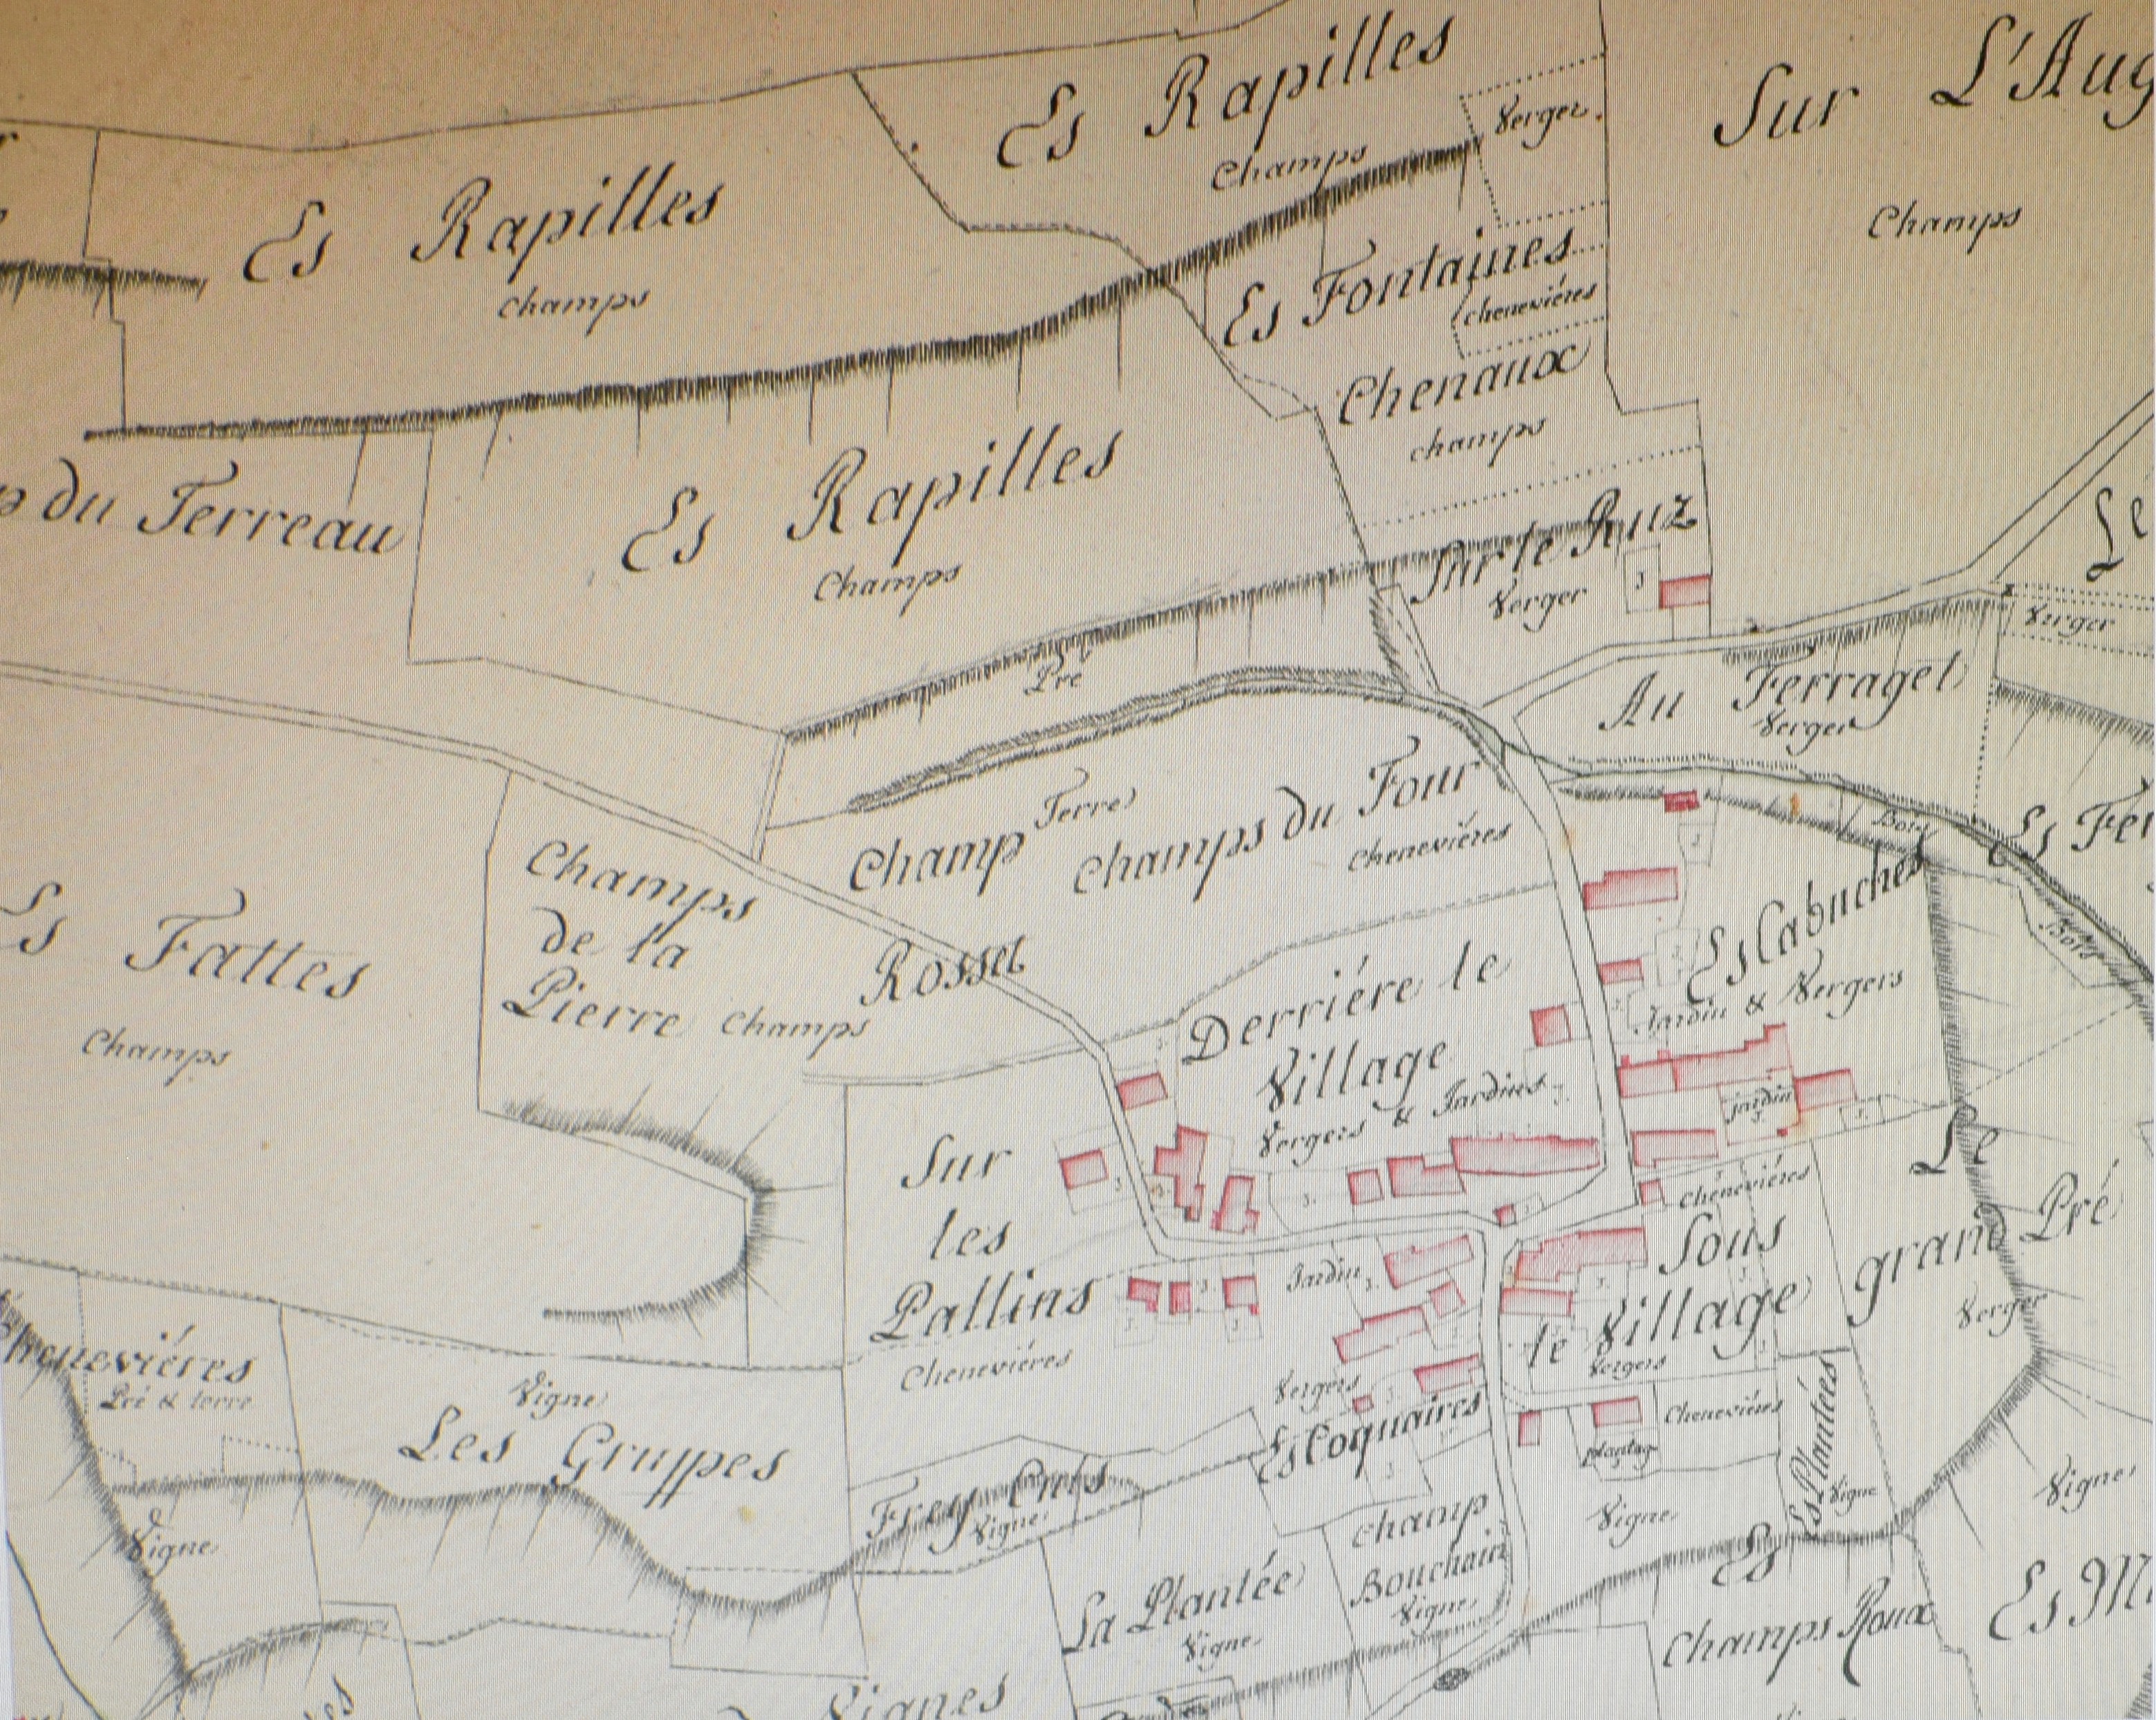 Es Rapilles
Champs
Verger
Sur L'Aug
Champs
Es Rapilles
Champs
Es Fontaines
chenevières
Chenaux
champs
du Terreau
Es Rapilles
Champs
Sur le Ruz
Verger
Le
Verger
Pré
Au Ferraget
Verger
Terre
Champ
Champs du Four
Chenevières
Bois
Es Fe
Champs
de la
Pierre
Champs
Rosset
Es Fattes
Champs
Es Cabuches
Jardin & Vergers
Bois
Derriére le
Village
Vergers & Jardins
jardin
Le
grand Pré
Verger
Sur
les
Pallins
Chenevières
Chénevières
Sous
le Village
Vergers
Jardin
Vergers
Es Coquaires
Chenevières
plantag
Es Plantées
Vigne
Vigne
Chenevières
Pré & terre
Vigne
Les Gruppes
Frey Crêts
Vigne
Vigne
Champ
Bouchain
Vigne
La Plantée
Vigne
Vigne
Es
Champs Roux
Es M
Vignes